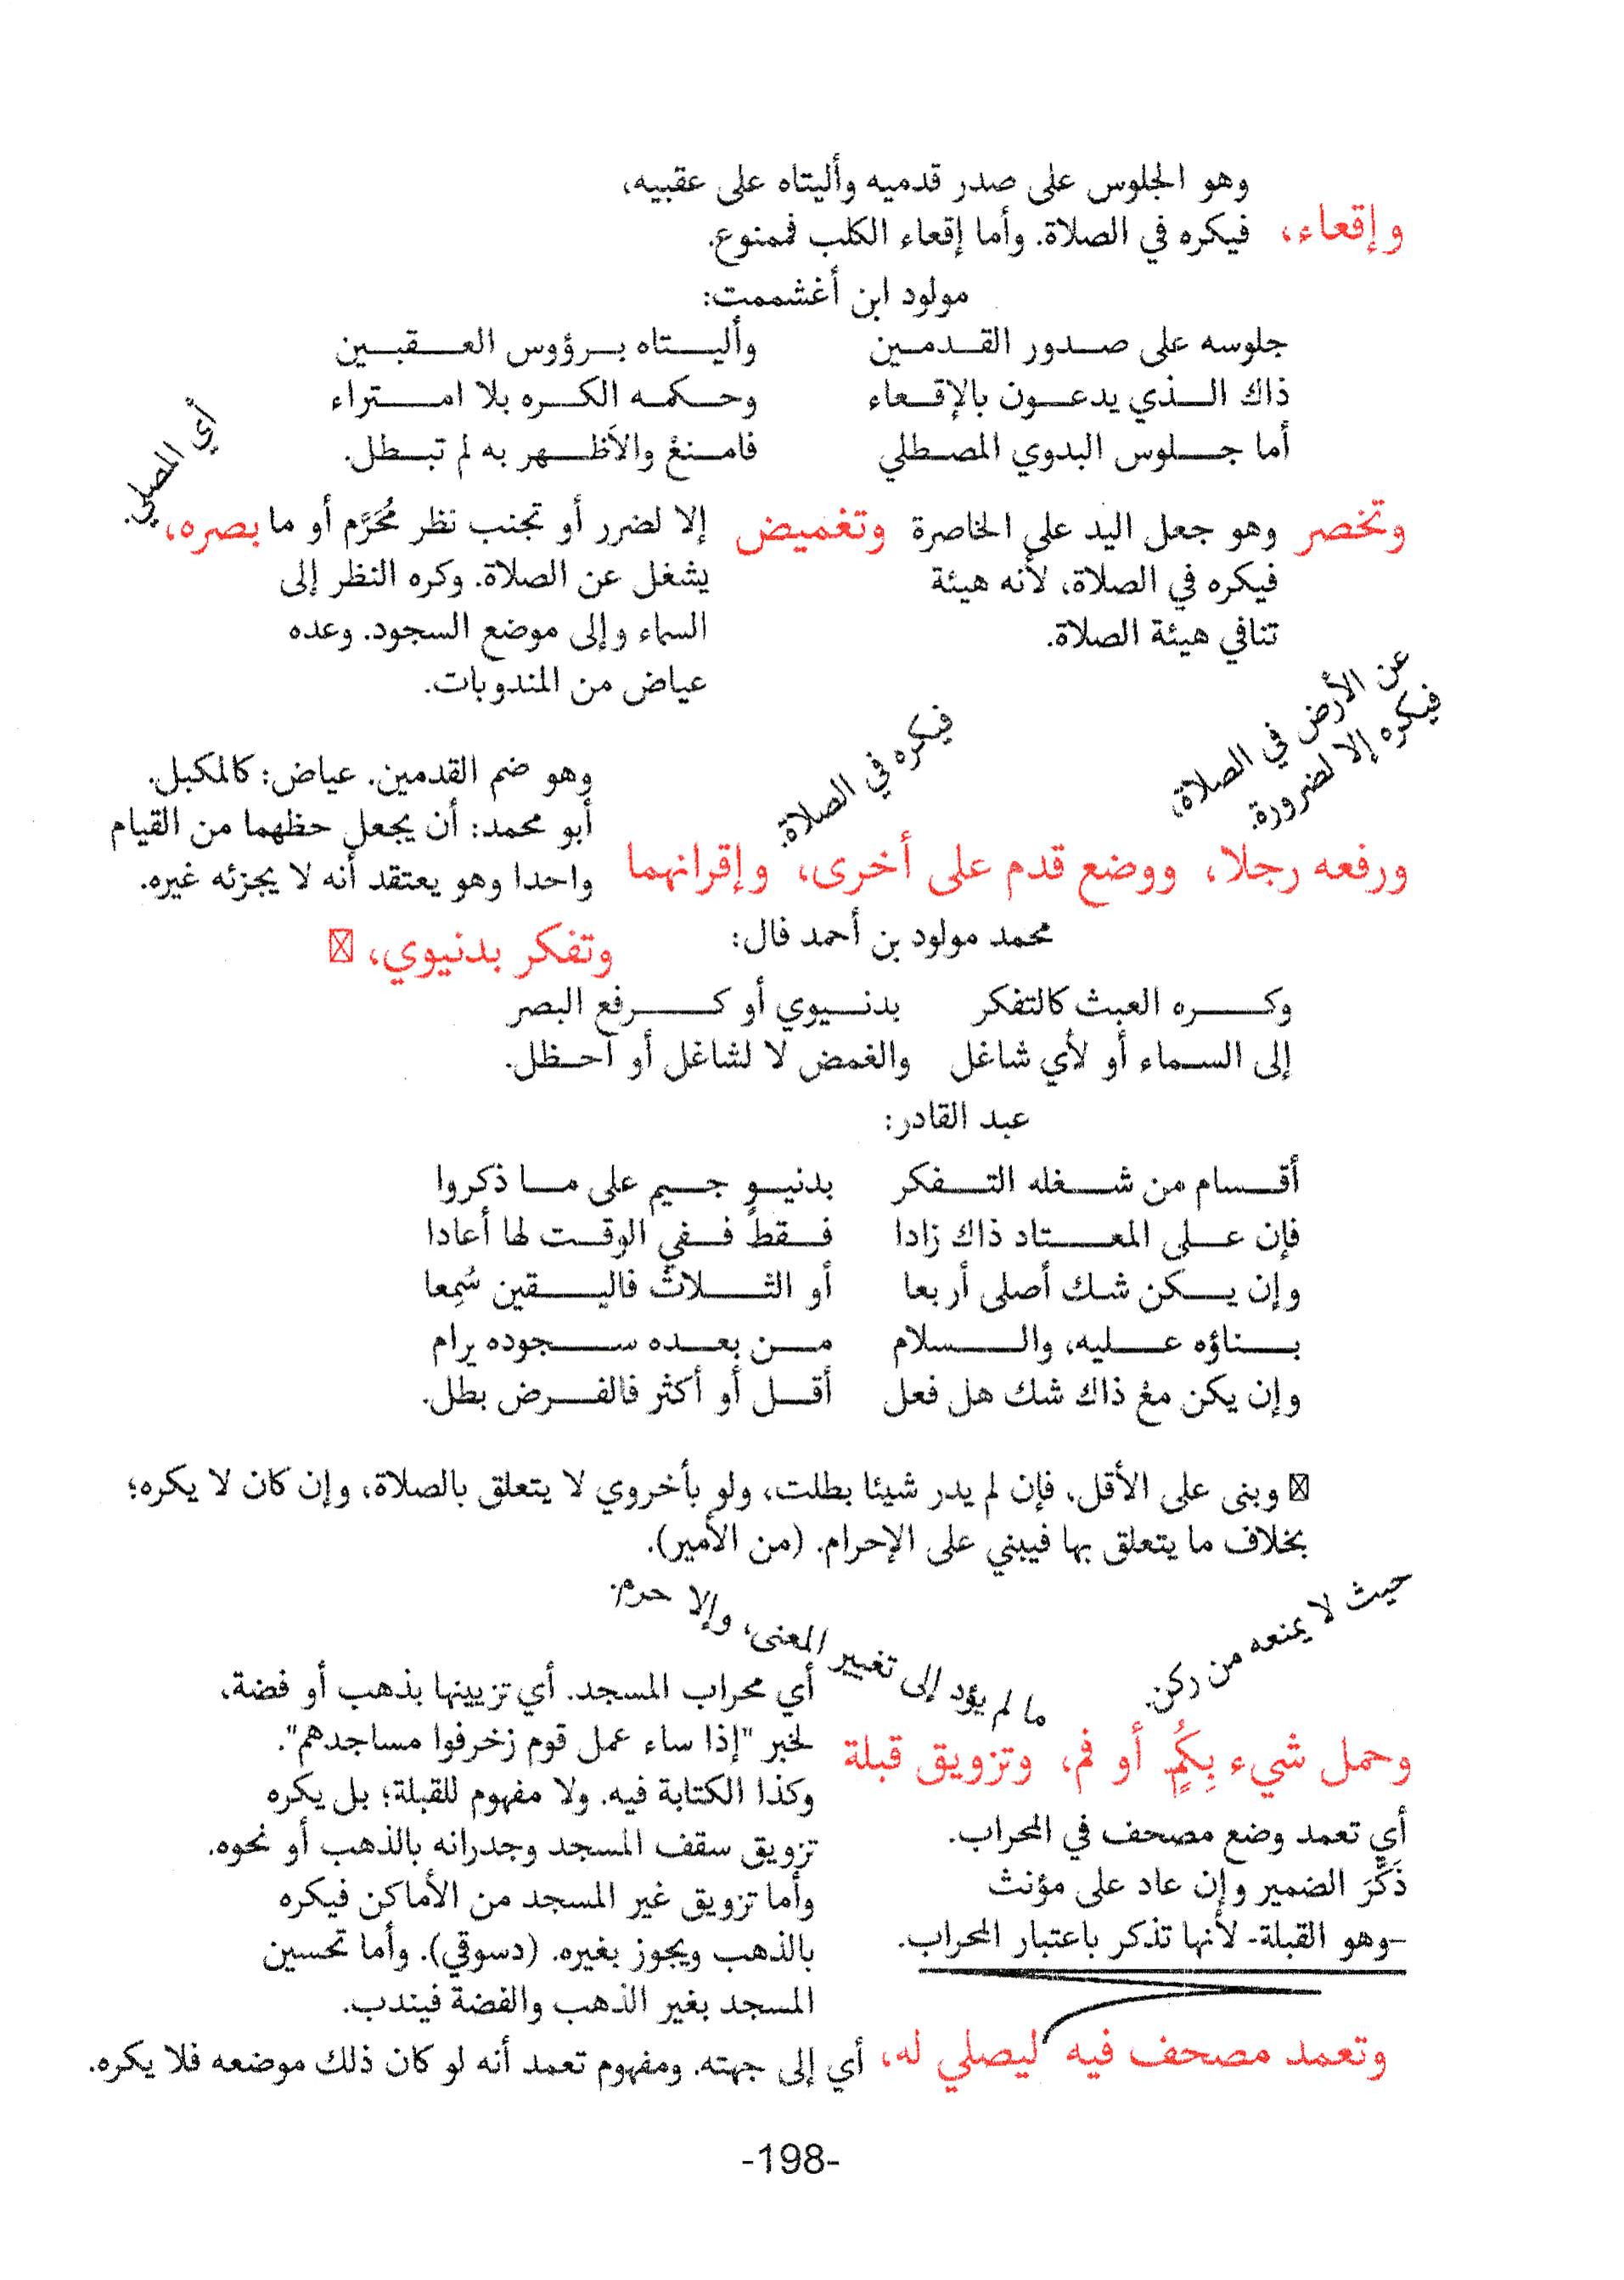 وهو الجلوس على صدر قدميه وأليتاه على عقبيه،
وإقعاء، فيكره في الصلاة. وأما إقعاء الكلب فممنوع.
مولود ابن أغشممت:
جلوسه على صدور القدمين وأليتاه برؤوس العقبين
ذاك الذي يدعون بالإقعاء وحكمه الكره بلا امتراء
أما جلوس البدوي المصطلي فامنعْ والاَظهر به لم تبطل.
أي المصلي.
وتخصر وهو جعل اليد على الخاصرة وتغميض إلا لضرر أو تجنب نظر مُحَرَّم أو ما بصره،
فيكره في الصلاة، لأنه هيئة يشغل عن الصلاة. وكره النظر إلى
تنافي هيئة الصلاة. السماء وإلى موضع السجود. وعده
عياض من المندوبات.
عن الأرض في الصلاة،
فيكره إلا لضرورة.
فيكره في الصلاة.
وهو ضم القدمين. عياض: كالمكبل.
أبو محمد: أن يجعل حظهما من القيام
ورفعه رجلا، ووضع قدم على أخرى، وإقرانهما واحدا وهو يعتقد أنه لا يجزئه غيره.
محمد مولود بن أحمد فال: وتفكر بدنيوي،
وكره العبث كالتفكر بدنيوي أو كرفع البصر
إلى السماء أو لأي شاغل والغمض لا لشاغل أو احظل.
عبد القادر:
أقسام من شغله التفكر بدنيو جيم على ما ذكروا
فإن على المعتاد ذاك زادا فقطْ ففي الوقت لها أعادا
وإن يكن شك أصلى أربعا أو الثلاثَ فاليقين سُمِعا
بناؤه عليه، والسلام من بعده سجوده يرام
وإن يكن معْ ذاك شك هل فعل أقل أو أكثر فالفرض بطل.
وبنى على الأقل. فإن لم يدر شيئا بطلت، ولو بأخروي لا يتعلق بالصلاة، وإن كان لا يكره؛
بخلاف ما يتعلق بها فيبني على الإحرام. (من الأمير).
حيث لا يمنعه من ركن.
ما لم يؤد إلى تغيير المعنى، وإلا حرم.
أي محراب المسجد. أي تزيينها بذهب أو فضة،
وحمل شيء بِكُمٍ أو فم، وتزويق قبلة لخبر "إذا ساء عمل قوم زخرفوا مساجدهم".
وكذا الكتابة فيه. ولا مفهوم للقبلة؛ بل يكره
تزويق سقف المسجد وجدرانه بالذهب أو نحوه.
وأما تزويق غير المسجد من الأماكن فيكره
بالذهب ويجوز بغيره. (دسوقي). وأما تحسين
المسجد بغير الذهب والفضة فيندب.
أي تعمد وضع مصحف في المحراب.
ذَكَّرَ الضمير وإن عاد على مؤنث
-وهو القبلة- لأنها تذكر باعتبار المحراب.
وتعمد مصحف فيه ليصلي له، أي إلى جهته. ومفهوم تعمد أنه لو كان ذلك موضعه فلا يكره.
-198-